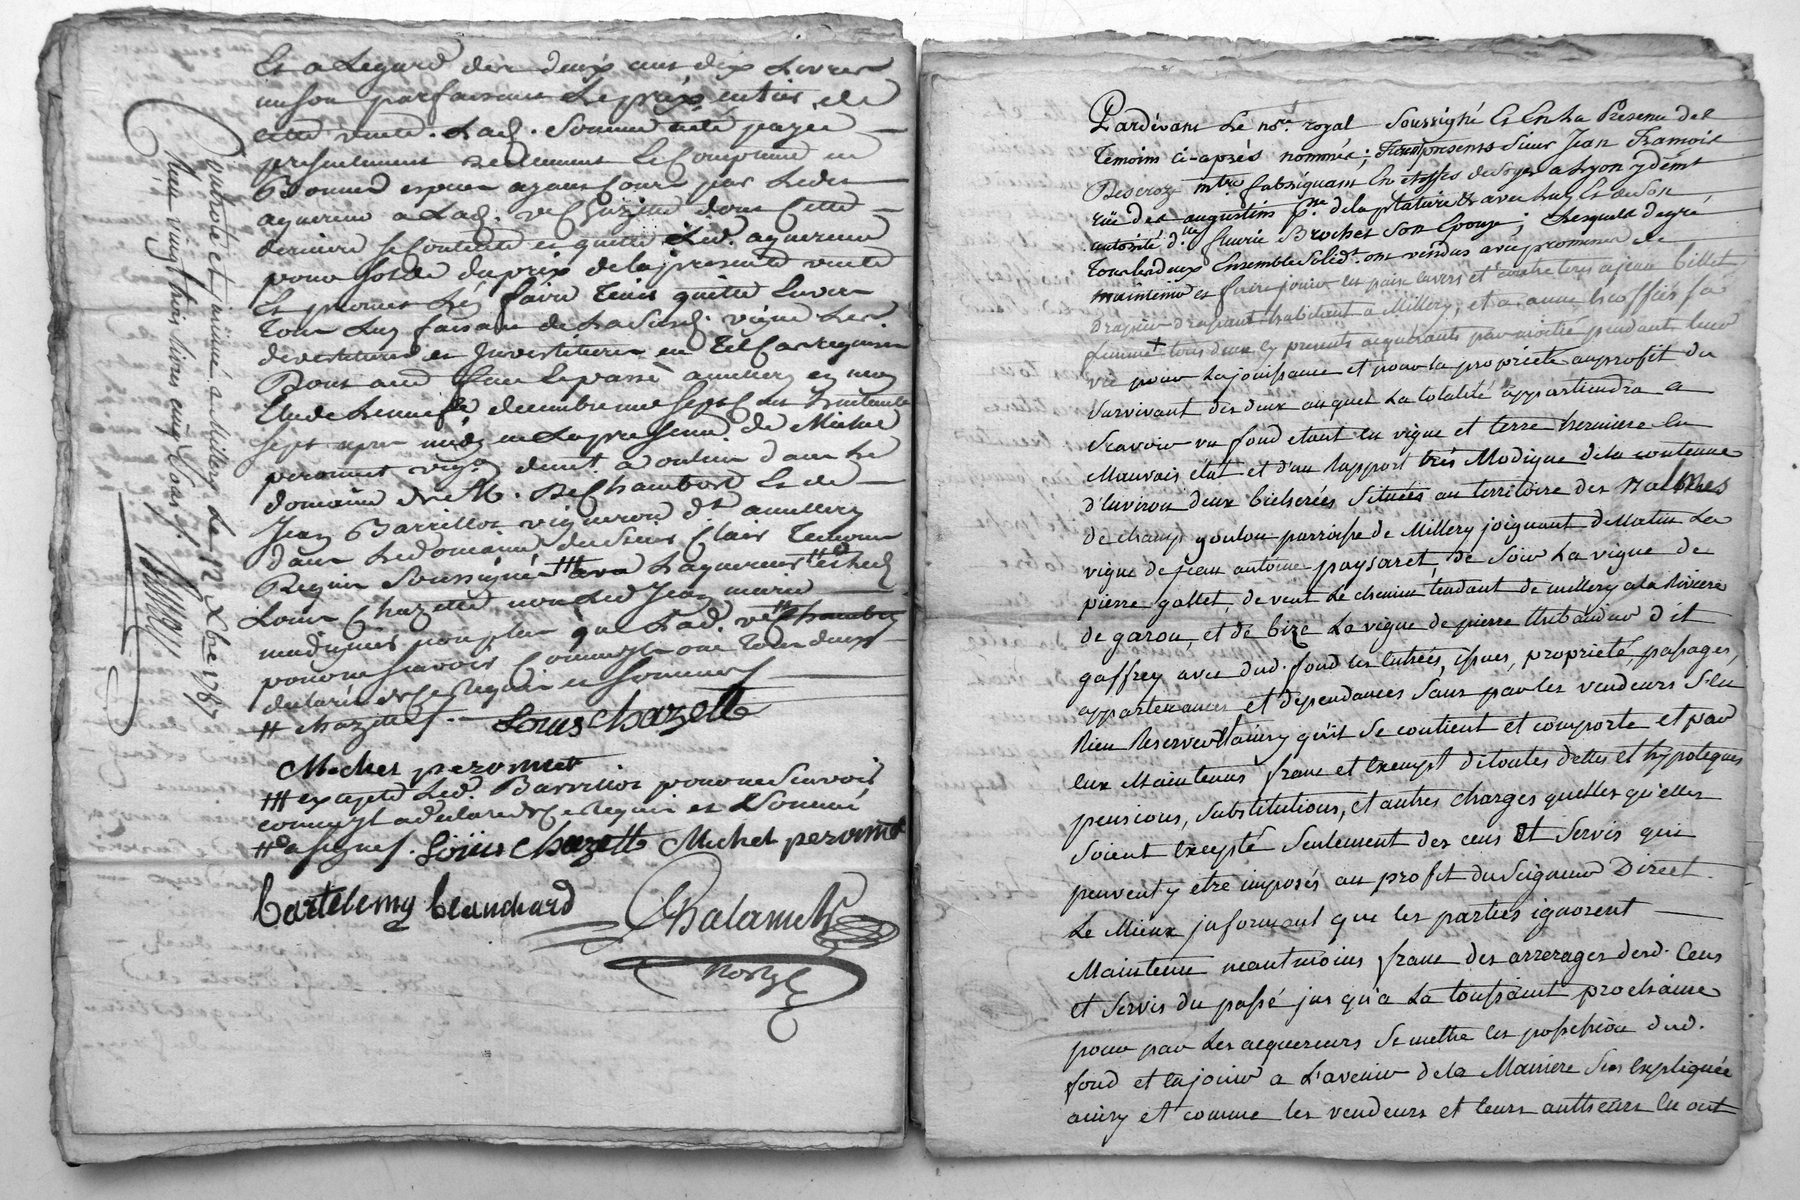 Et a Legard des deux cent dix Livres
parfaisant Le prix entier de
cette vente. Lad. Somme été payée
presentement reellement Et Comptant en
Bonnes especes ayant Cours par Ledit
aquereur a Lad. ve Chazette dont Cette
derniere se Contente et quitte Led. aquereur
pour solde du prix de la presente vente
Et promet Les faire Tenir quitte Envers
Tous Luy faisant de Lad. vigne Les
devestitures et Investitures en Tel Cas requises
Dont acte fait Et passé a millery en mon
Etude Le neuf decembre mil sept Cent Trente
sept apres midy en La presence de Michel
peronnet vign. demt. a oulin dans Le
domaine de M. De Chambost Et de
Jean Barrillot vigneron dt a millery
dans Le domaine du Sieur Clair Temoins
Requis Soussignés ### Laquereur ## et Led.
Louis Chazette non Led Jean marie
madignier non plus que Lad. ve Chambry
pour ne sçavoir Ecrire ont Tous deux
declaré de Ce Requis et sommés
# Chazette. Louis Chazette
Michel peronnet
### excepté Led. Barrillot pour ne sçavoir
a declaré de Ce Requis et Sommé
## a signé. Louis Chazette Michel peronnet
Bartelemy blanchard Chalamel
nore
Controlé et insinué a Millery Le 12 Xbre 1787
Reçu vingt trois livres cinq sous
Pardevant Le nore. royal Soussigné Et En La Presence des
Temoins ci-après nommés; Furent presents Sieur Jean François
Descroz mtre fabriquant En étoffes de Soye a Lyon y demt
rüe des augustins psse. de la platiere & avec Luy Et de Son
autorité dlle fleurie Brochet Son Epouse; Lesquels de gré
Tous les deux Ensemble Solidt. ont vendus avec promesse de
maintenir et faire jouir en paix envers et contre tous a jean billet
Drapier Drapant habitant a Millery, et a anne Escoffier sa
femme + tous deux cy presents acquerants par moitié pendant leur
vie pour La jouissance et pour la proprieté au profit du
Survivant des deux auquel La totalité appartiendra a
Scavoir un fond etant en vigne et terre hermiere en
Mauvais état et d'un Rapport très Modique de la contenue
d'Environ deux bicherées Situées au territoire des Balmes
de champ goulou parroisse de Millery joignant de Matin La
vigne de jean antoine paysaret, de Soir La vigne de
pierre gallet, de vent Le chemin tendant de millery a la Riviere
de garon, et de bize La vigne de pierre thibaudier dit
gaffrey avec dud. fond les Entrées, issues, proprieté, passages,
appartenances et dependances Sans par les vendeurs s'en
Rien Reserver & ainsy qu'il Se contient et comporte et par
Eux Maintenus franc et Exempt de toutes dettes et hypoteques
pensions, Substitutions, et autres charges quelles quelles
Soient Excepté Seulement des cens Et Servis qui
peuvent y etre imposés au profit du Seigneur Direct
Le Mieux informant que les parties ignorent
Maintenu neantmoins franc des arrerages desd. Cens
et Servis du passé jusqu'a La toussaint prochaine
pour par Les acquereurs Se mettre en possession dud.
fond et En jouir a L'avenir de la Maniere Sus Expliquée
ainsy et comme les vendeurs et leurs autheurs En ont